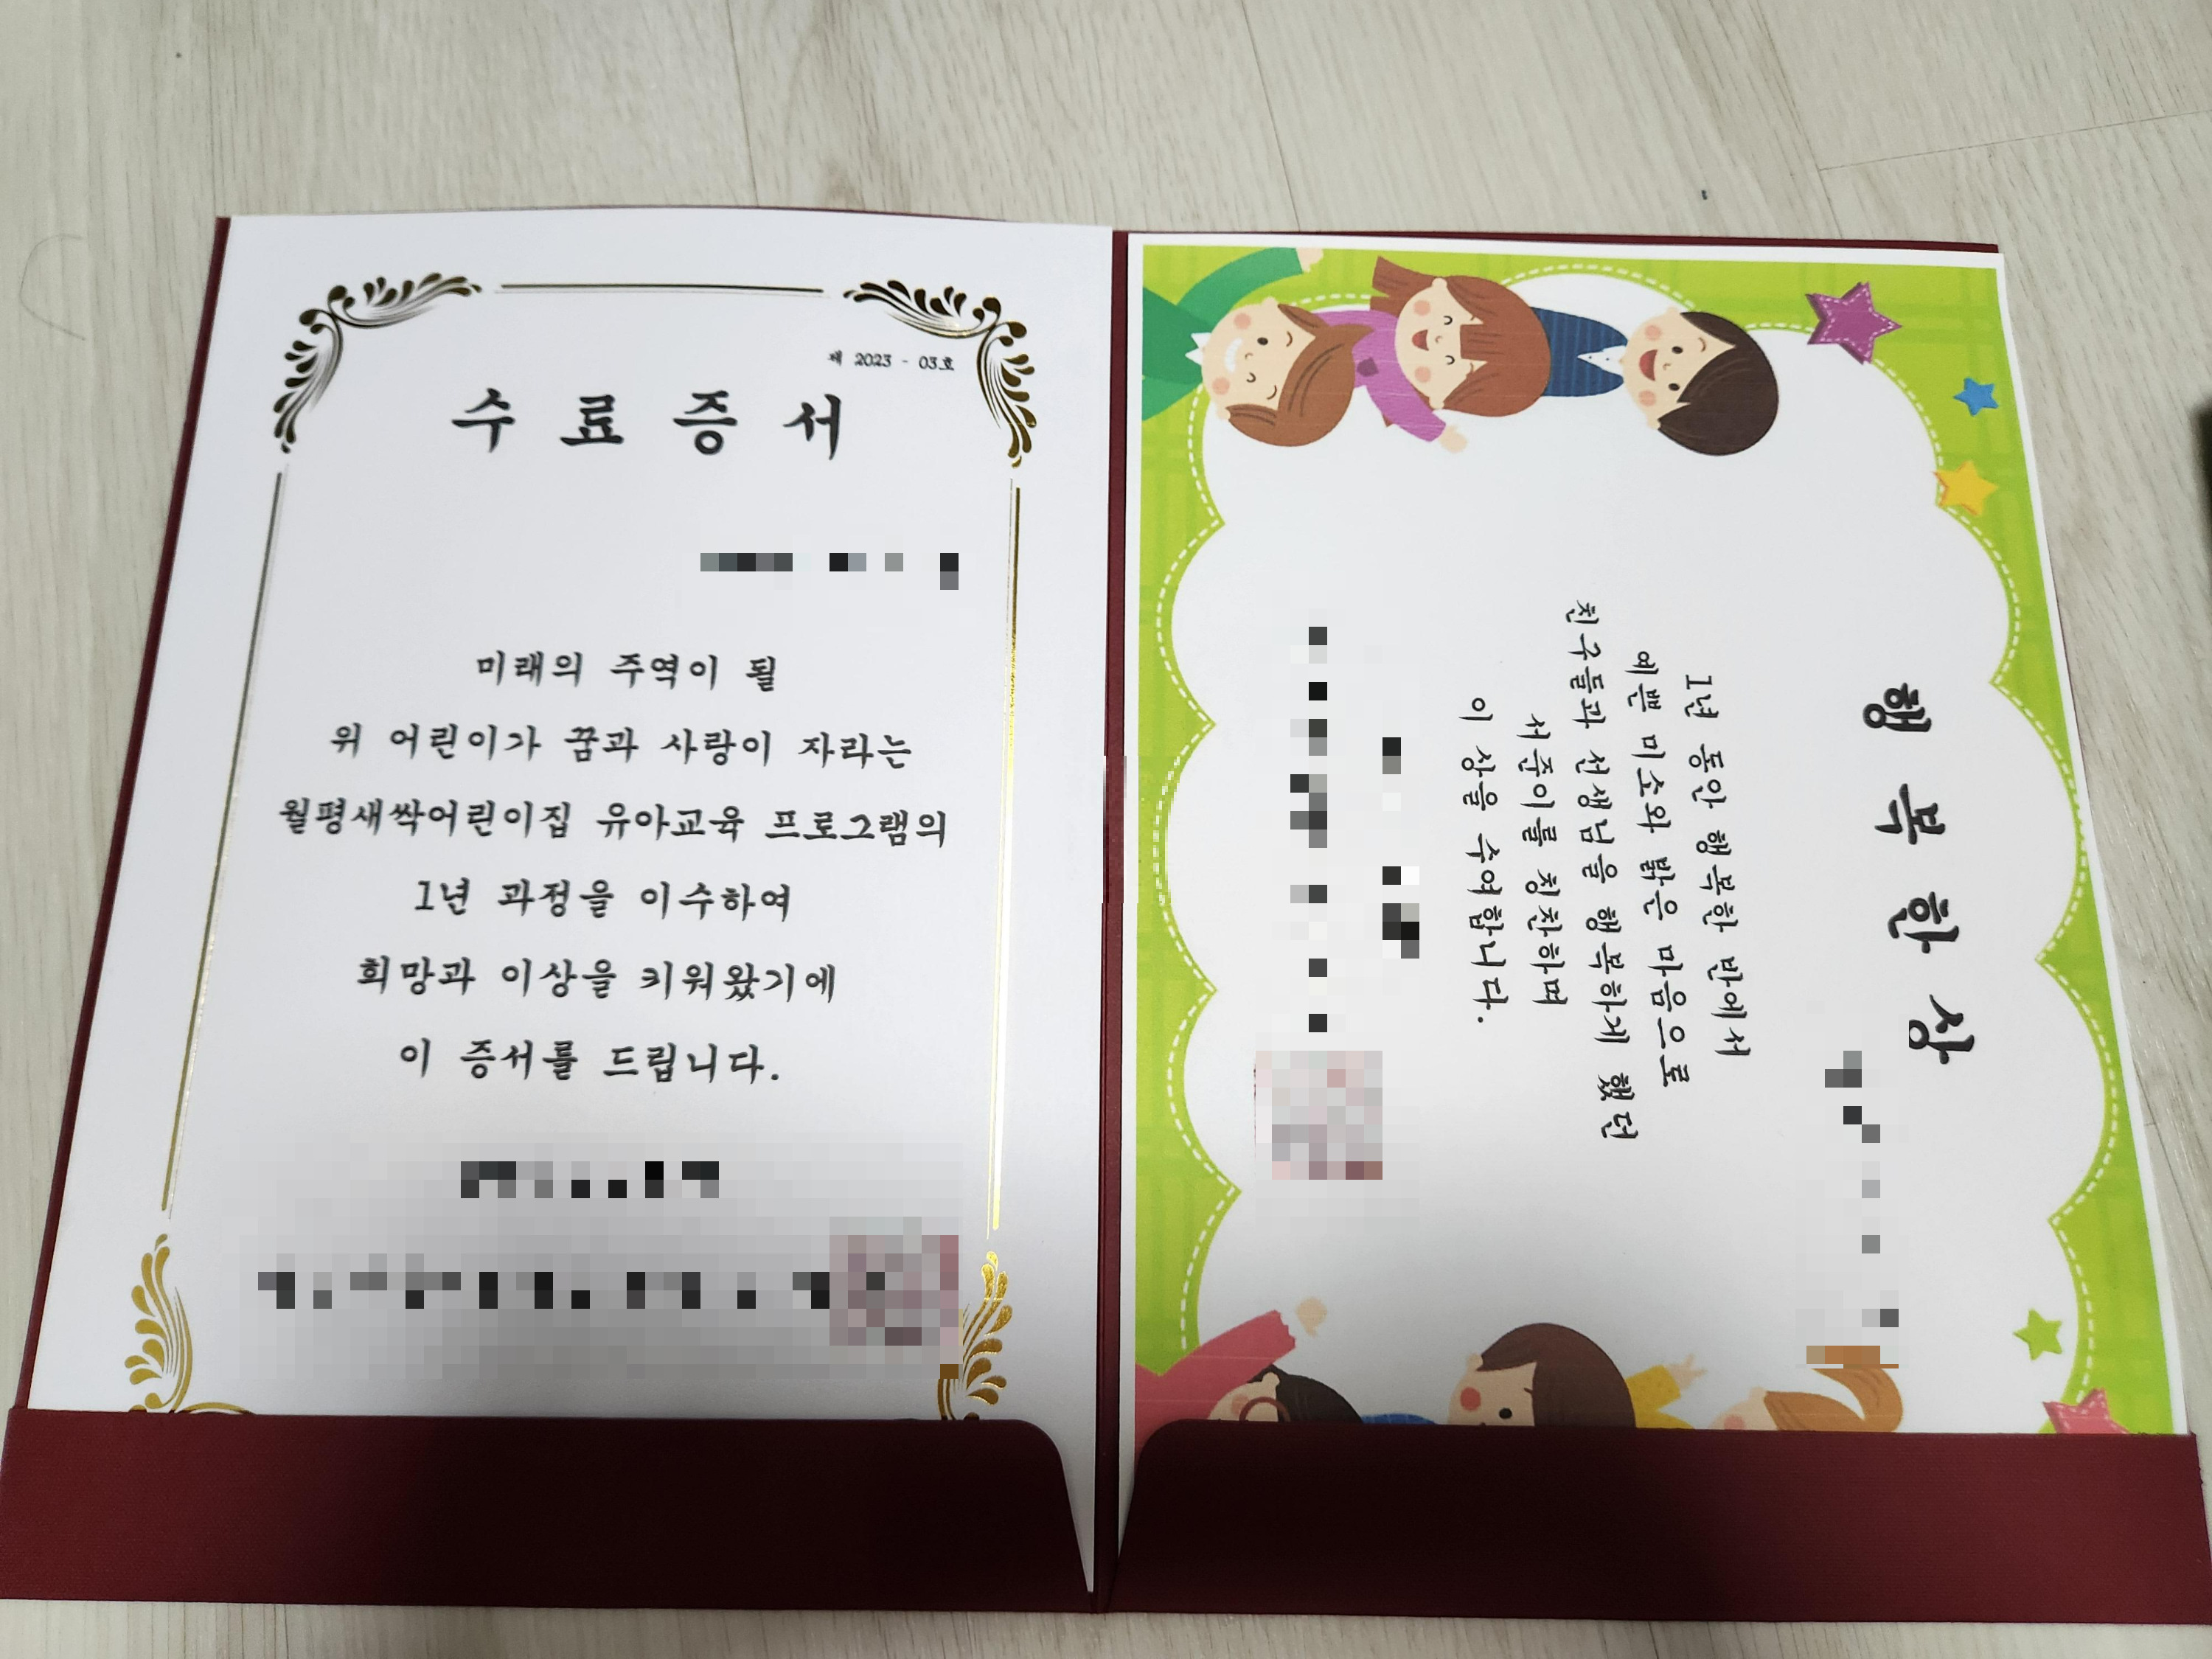 제 2023 - 03호
수 료 증 서
미래의 주역이 될
위 어린이가 꿈과 사랑이 자라는
월평새싹어린이집 유아교육 프로그램의
1년 과정을 이수하여
희망과 이상을 키워왔기에
이 증서를 드립니다.
행 복 한 상
1년 동안 행복한 반에서
예쁜 미소와 밝은 마음으로
친구들과 선생님을 행복하게 했던
서준이를 칭찬하며
이 상을 수여합니다.